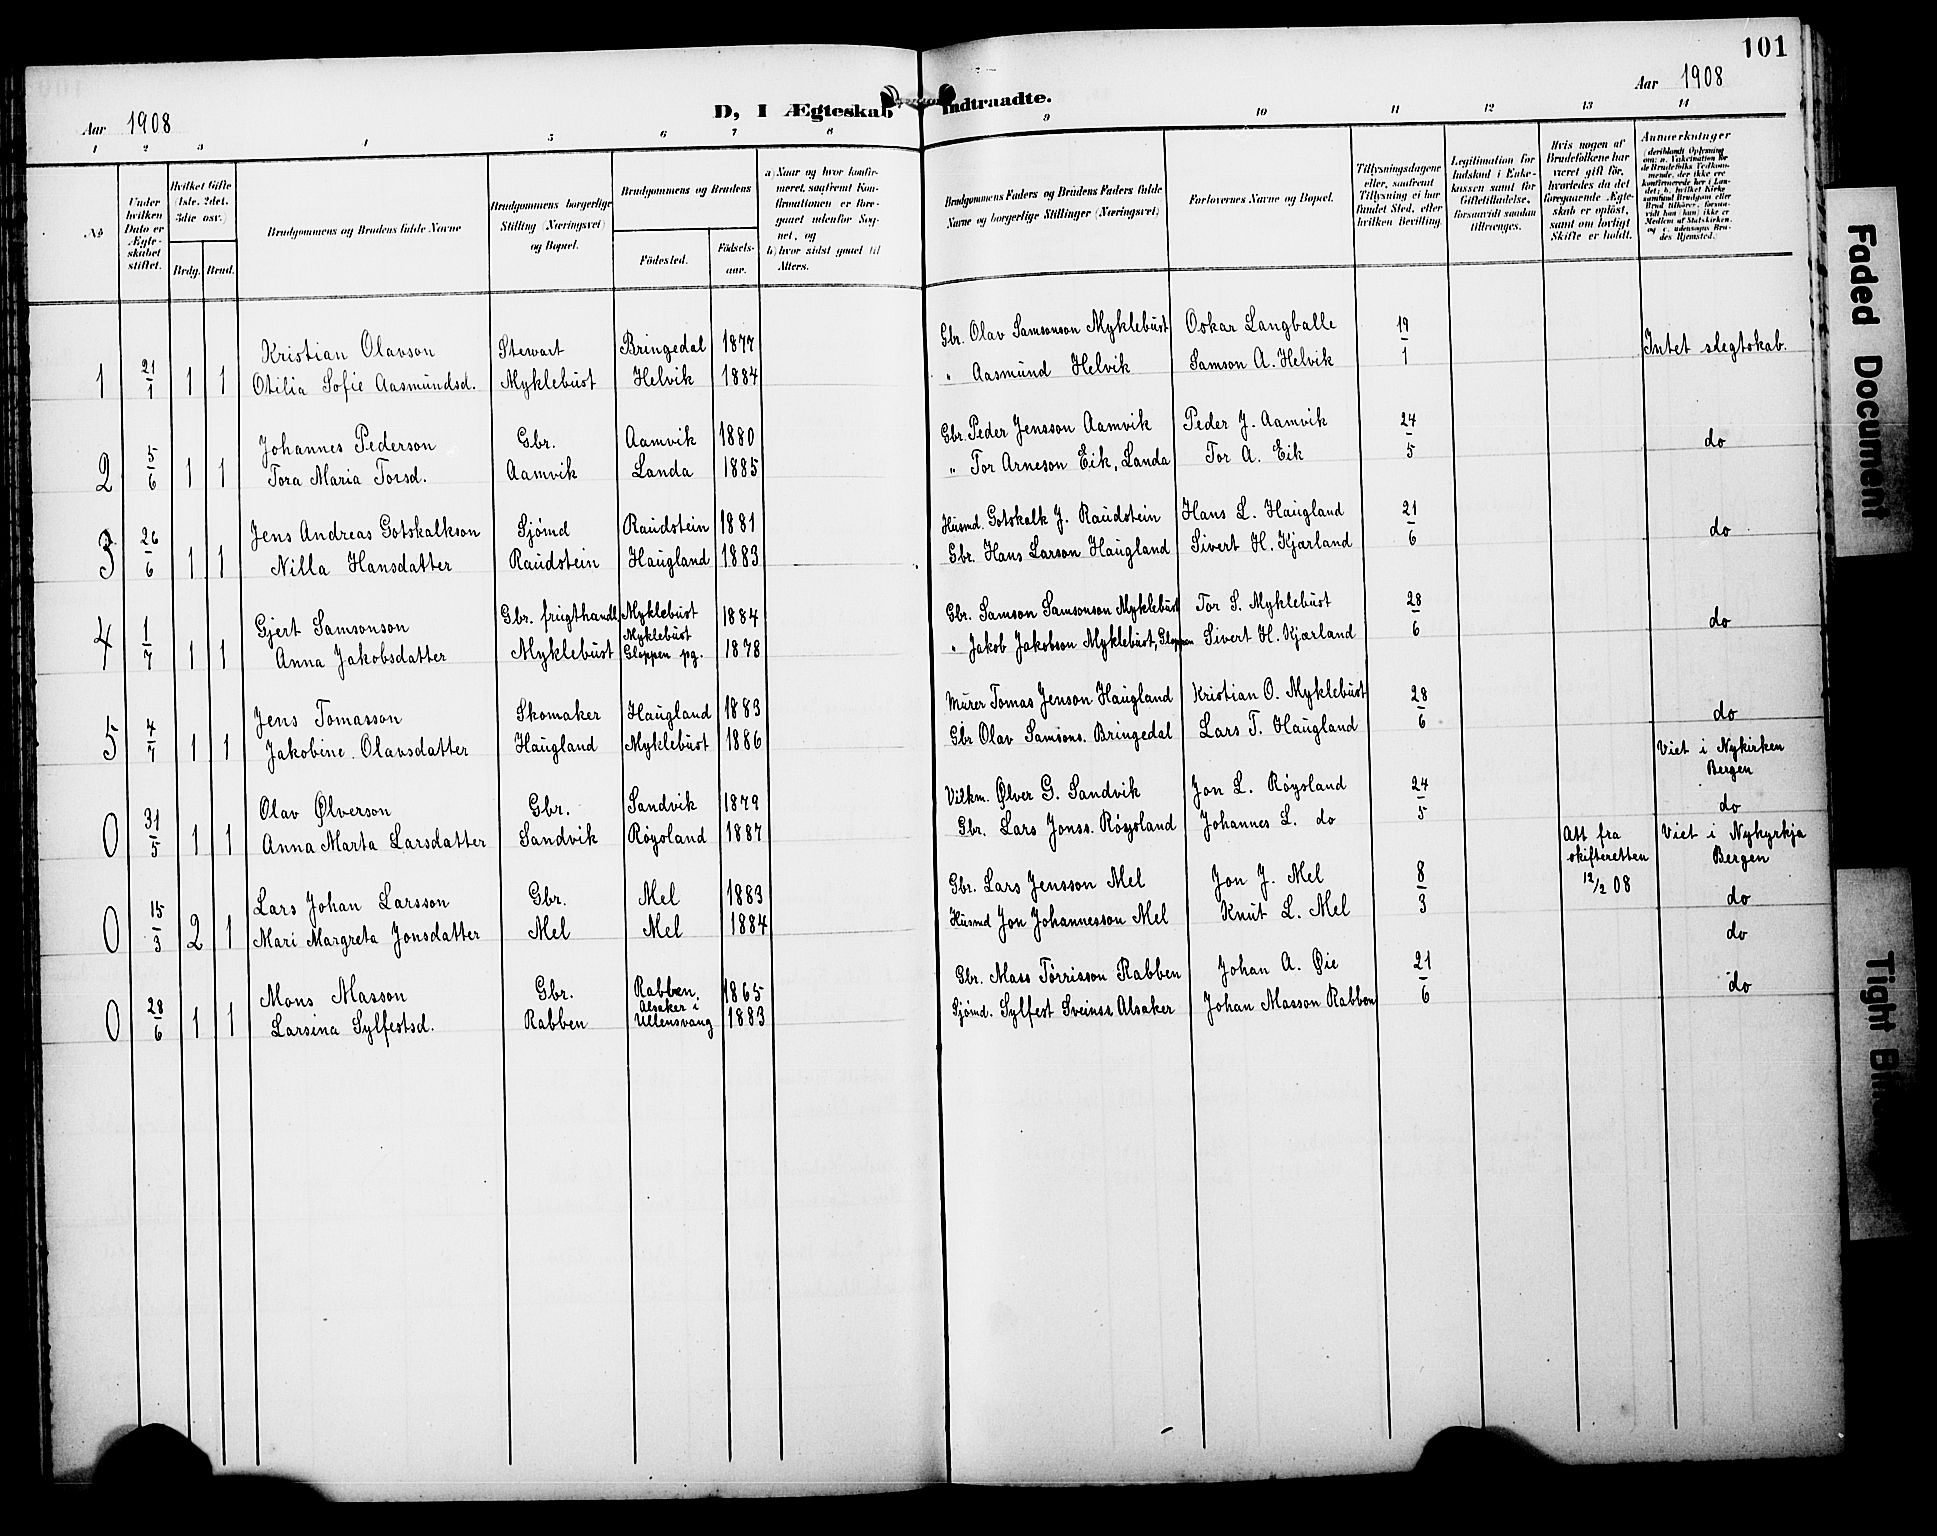 101
Aar 1908
D, I Ægteskab Indtraadte.
Aar 1908
1 2 3 4 5 6 7 8 9 10 11 12 13 14
No
Under hvilken Dato er Ægteskabet stiftet.
Hvilket Gifte (1ste, 2det, 3die osv.)
Brdg. Brud.
Brudgommens og Brudens fulde Navne
Brudgommens borgerlige Stilling (Næringsvei) og Bopæl.
Brudgommens og Brudens
Födested. Födselsaar.
a) Naar og hvor konfirmeret, saafremt Konfirmationen er foregaaet udenfor Sognet, og
b) hvor sidst gaaet til Alters.
Brudgommens Faders og Brudens Faders fulde Navne og borgerlige Stillinger (Næringsvei)
Forlovernes Navne og Bopæl.
Tillysningsdagene eller, saafremt Tillysning ei har fundet Sted, efter hvilken Bevilling
Legitimation for Indskud i Enkekassen samt for Giftetilladelse, forsaavidt saadan tiltrænges.
Hvis nogen af Brudefolkene har været gift för, hvorledes da det foregaaende Ægteskab er oplöst, samt om lovligt Skifte er holdt.
Anmærkninger
1 21/1 1 1 Kristian Olavson Stewart Bringedal 1877 Gbr. Olav Samsonson Myklebust Oskar Langballe 19/1 Intet slegtskab.
Otilia Sofie Aasmundsd. Myklebust Helvik 1884 " Aasmund Helvik Samson A. Helvik
2 5/6 1 1 Johannes Pederson Gbr. Aamvik 1880 Gbr. Peder Jensson Aamvik Peder J. Aamvik 24/5 do
Tora Maria Torsd. Aamvik Landa 1885 " Tor Arneson Eik, Landa Tor A. Eik
3 26/6 1 1 Jens Andreas Gotskalkson Sjömd Raudstein 1881 Husmd. Gotskalk J. Raudstein Hans L. Haugland 21/6 do
Nilla Hansdatter Raudstein Haugland 1883 Gbr. Hans Larson Haugland Sivert H. Kjærland
4 1/7 1 1 Gjert Samsonson Gbr. frugthandl. Myklebust 1884 Gbr. Samson Samsonson Myklebust Tor S. Myklebust 28/6 do
Anna Jakobsdatter Myklebust Myklebust Gloppen pg. 1878 " Jakob Jakobson Myklebust, Gloppen Sivert H. Kjærland
5 4/7 1 1 Jens Tomasson Skomaker Haugland 1883 Murer Tomas Jenson Haugland Kristian O. Myklebust 28/6 do
Jakobine Olavsdatter Haugland Myklebust 1886 Gbr Olav Samsons. Bringedal Lars T. Haugland
Viet i Nykirken Bergen
0 31/5 1 1 Olav Ølverson Gbr. Sandvik 1879 Vilkm. Ølver G. Sandvik Jon L. Röysland 24/5 do
Anna Marta Larsdatter Sandvik Röysland 1887 Gbr. Lars Jonss. Röysland Johannes L. do
Att fra skifteretten 12/2 08
Viet i Nykyrkja Bergen
0 15/3 2 1 Lars Johan Larsson Gbr. Mel 1883 Gbr. Lars Jensson Mel Jon J. Mel 8/3 do
Mari Margreta Jonsdatter Mel Mel 1884 Husmd Jon Johannesson Mel Knut L. Mel do
0 28/6 1 1 Mons Masson Gbr. Rabben 1865 Gbr. Mass Torrisson Rabben Johan A. Øie 21/6 do
Larsina Sylfestsd. Rabben Alsaker i Ullensvang 1883 Sjömd. Sylfest Sveinss Alsaker Johan Masson Rabben
Faded Document
Tight